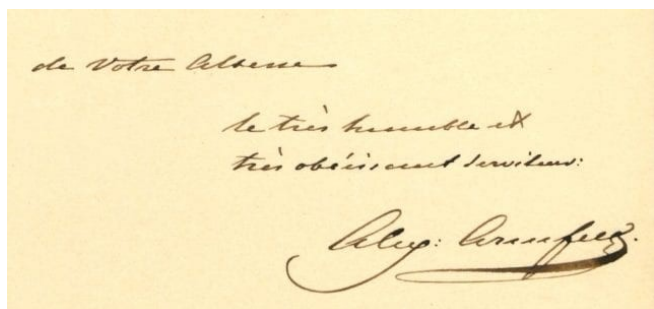 de Votre Altesse
le très humble et
très obéissant serviteur:
Alex: Armfelt.